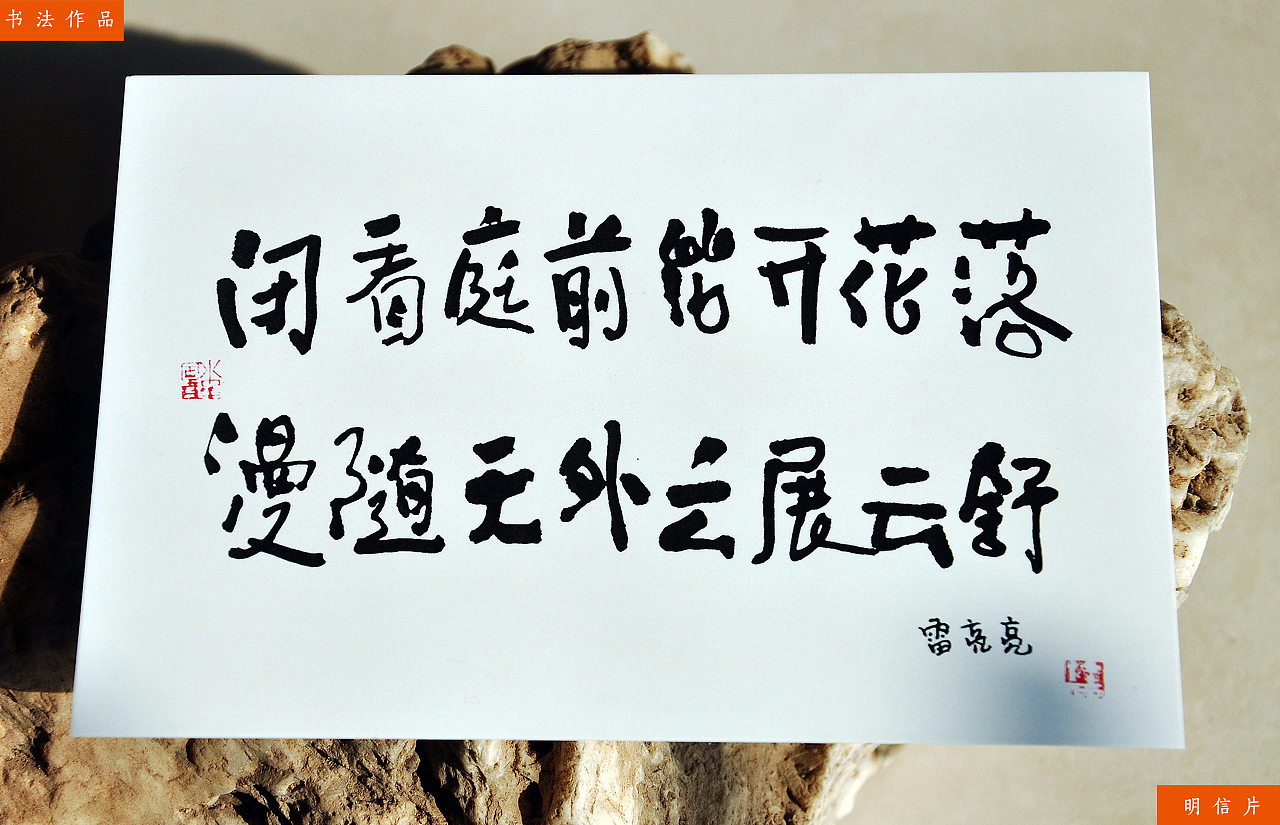 书法作品
闲看庭前花开花落
漫随天外云展云舒
雷亮亮
明信片